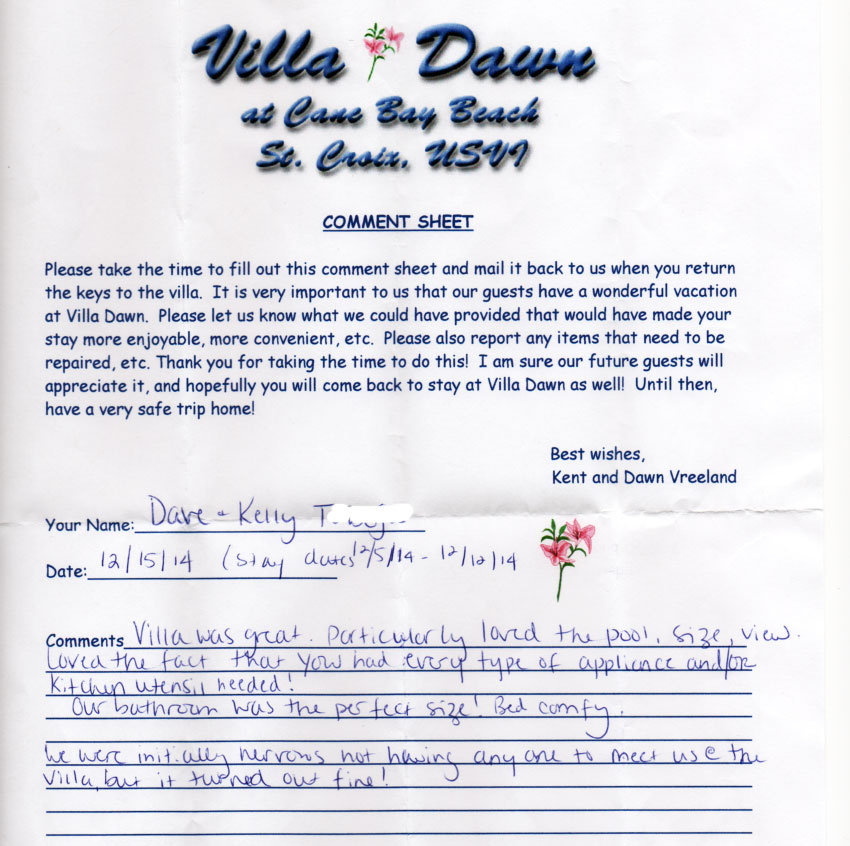 Villa Dawn
at Cane Bay Beach
St. Croix, USVI
COMMENT SHEET
Please take the time to fill out this comment sheet and mail it back to us when you return
the keys to the villa. It is very important to us that our guests have a wonderful vacation
at Villa Dawn. Please let us know what we could have provided that would have made your
stay more enjoyable, more convenient, etc. Please also report any items that need to be
repaired, etc. Thank you for taking the time to do this! I am sure our future guests will
appreciate it, and hopefully you will come back to stay at Villa Dawn as well! Until then,
have a very safe trip home!
Best wishes,
Kent and Dawn Vreeland
Your Name: Dave + Kelly T
Date: 12/15/14 (Stay dates 12/5/14 - 12/12/14
Comments Villa was great. Particularly loved the pool, size, view.
Loved the fact that you had every type of appliance and/or
Kitchen utensil needed!
Our bathroom was the perfect size! Bed comfy.
We were initially nervous not having anyone to meet us @ the
Villa, but it turned out fine!